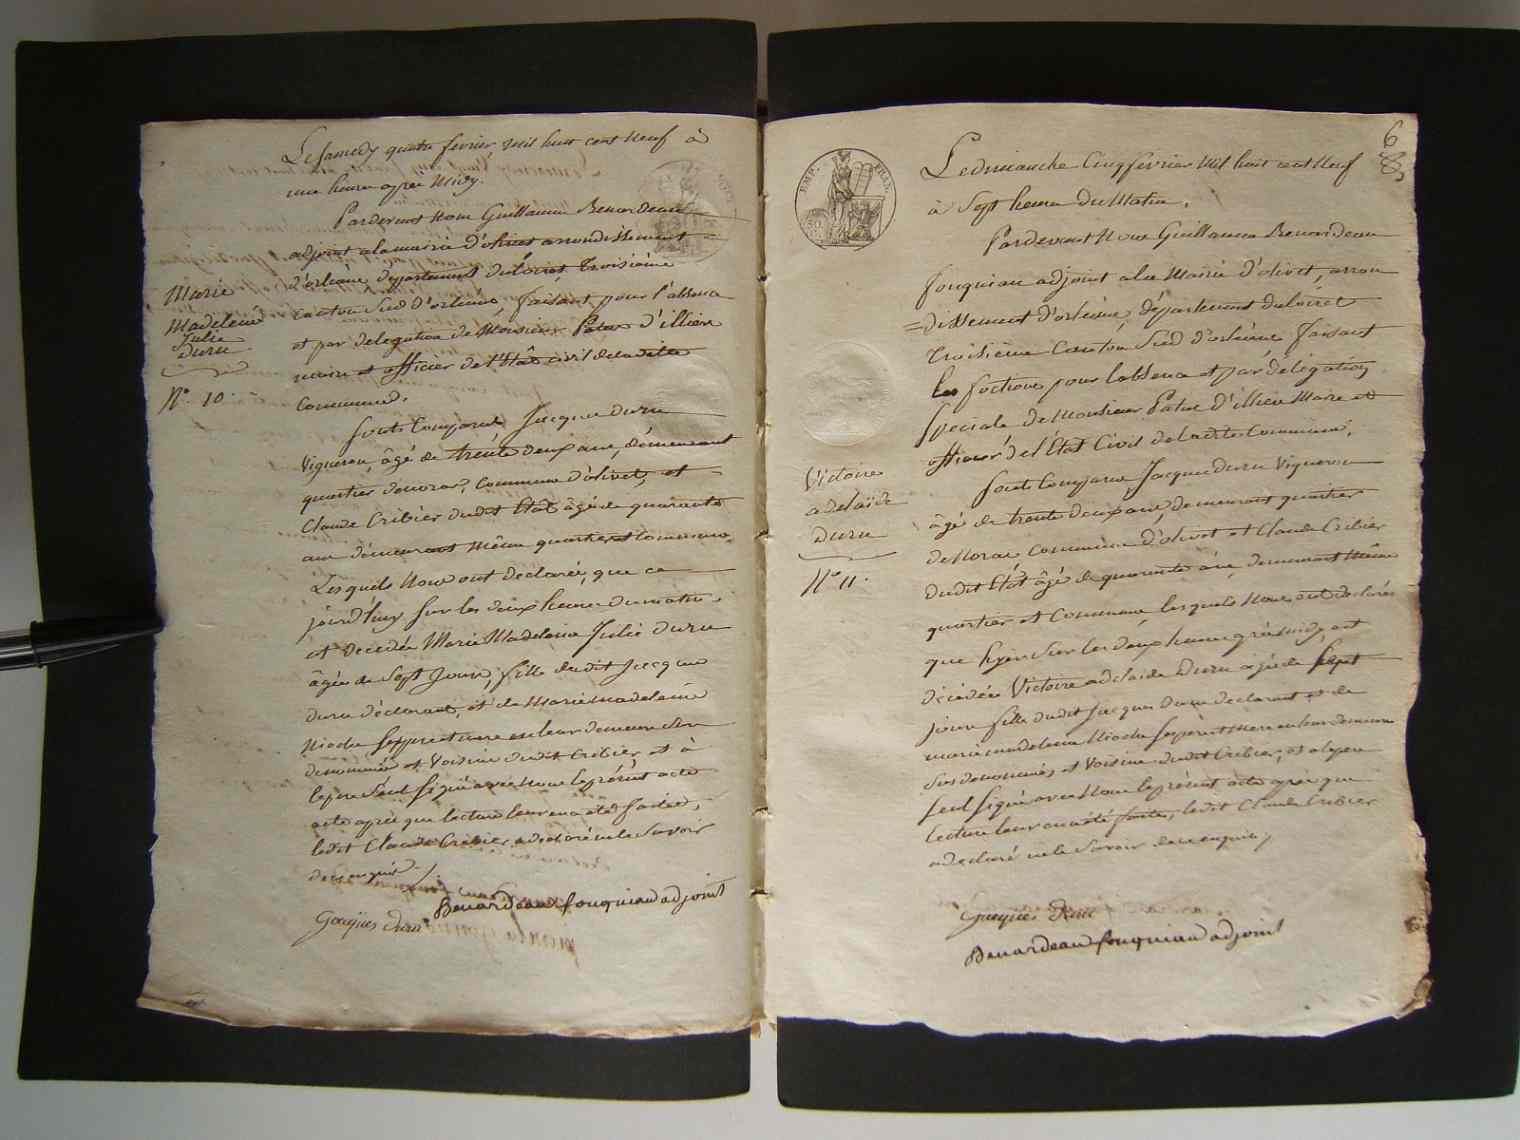 Le Samedy quatre février mil huit cent neuf à
une heure apres Midy.
Pardevant nous Guillaume Benardeau
adjoint a la mairie d'olivet arrondissement
d'orléans departement du Loiret Troisième
canton Sud d'orléans, faisant pour l'absence
et par delegation de Monsieur Patas d'illiers
maire et officier de l'Etat civil de la dite
Commune.
Marie
Madeleine
Julie
Duru
N°. 10.
Sont Comparus Jacque duru
Vigneron, âgé de trente deux ans, demeurant
quartier de noras, Commune d'olivet, et
Claude Cribier dudit Etat âgé de quarante
ans demeurant même quartier et Commune
Lesquels Nous ont declaré, que ce
jourd'huy sur les deux heures du matin
est decedée Marie Madeleine Julie Duru
âgée de Sept Jours, fille dudit Jacque
duru déclarant, et de Marie Madeleine
Niochu Ses pere et mere en leur demeure
denommée et Voisine dudit Cribier, et à
le pere Seul Signé avec Nous le présent acte
acte après que lecture leur en a été faite,
ledit Claude Cribier a déclaré ne le Savoir
de ce enquis ./.
Benardeau fouquiau adjoint
Gacques Duru
6
EMP. FRAN.
Le dimanche Cinq février Mil huit cent Neuf
à Sept heures du Matin.
Pardevant Nous Guillaume Benardeau
fouquiau adjoint a la Mairie d'olivet, arron
=dissement d'orléans, département du Loiret
Troisième Canton Sud d'orléans faisant
les foctions pour l'absence et par délégation
Speciale de Monsieur Patas d'illiers Maire et
officier de l'Etat Civil de ladite Commune.
Victoire
adelaïde
Duru
N° 11.
Sont Comparus Jacque duru Vigneron
âgé de trente deux ans, demeurant quartier
de Noras Commune d'olivet et Claude Cribier
dudit Etat âgé de quarante ans, demeurant même
quartier et Commune, lesquels Nous ont declaré
que hyer Sur les deux heures après midy est
décédée Victoire adelaide Duru agée de Sept
jours fille dudit Jacques Duru declarant et de
marie madeleine Niochu Ses pere et Mere en leur demeure
Sus denommés et Voisine dudit Cribier, et a le pere
Seul Signé avec Nous le présent acte après que
lecture leur en a été faite, ledit Claude Cribier
a declaré ne le Savoir de ce enquis /
Gacques Duru
Benardeau fouquiau adjoint